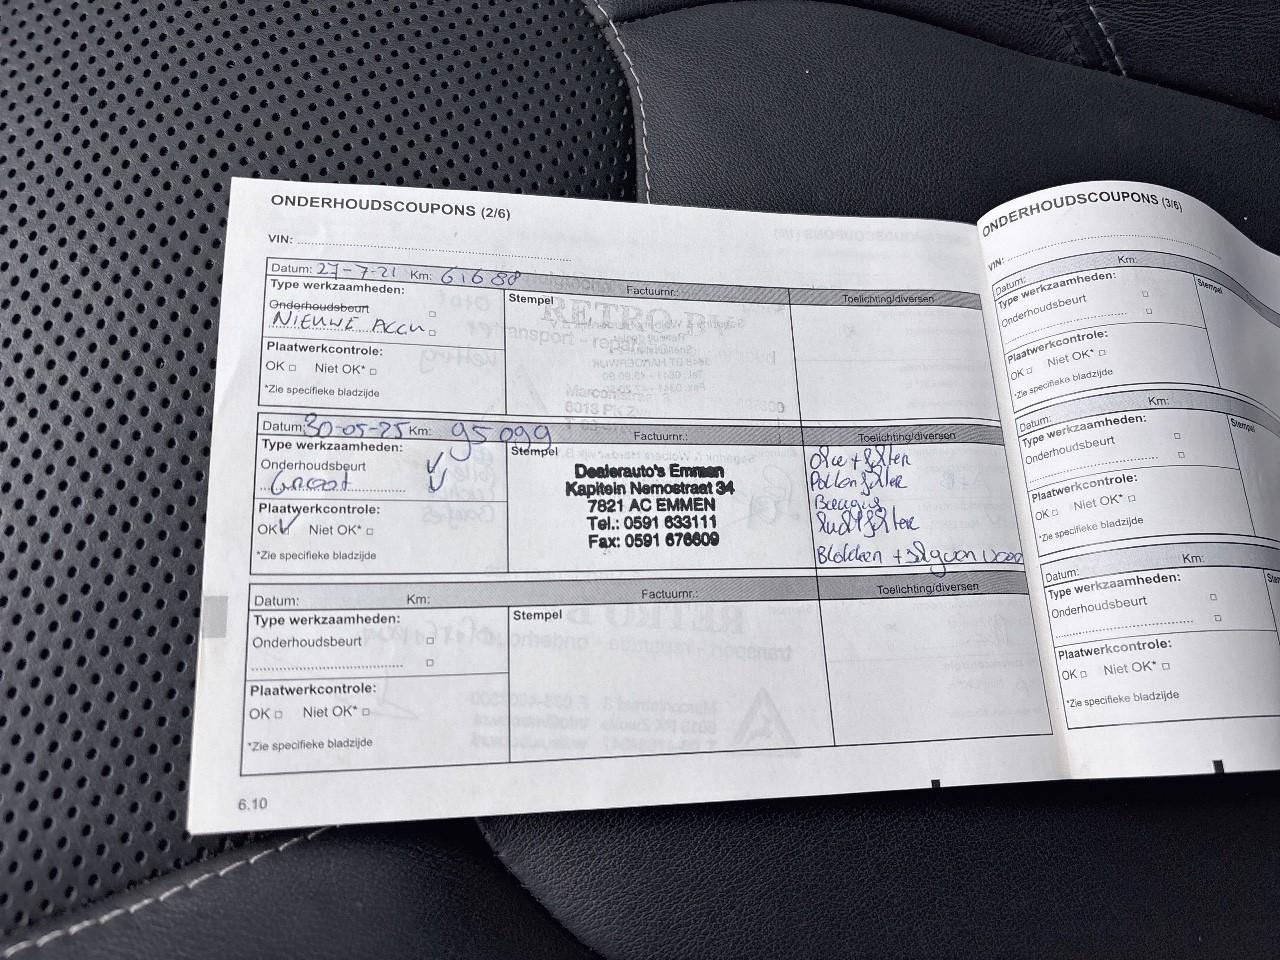 ONDERHOUDSCOUPONS (2/6)
VIN:
Datum: 27-7-21 Km: 61688 Factuurnr.:
Type werkzaamheden:
Stempel
Toelichting/diversen
Onderhoudsbeurt
NIEUWE ACCU
Plaatwerkcontrole:
OK Niet OK*
*Zie specifieke bladzijde
Datum: 30-05-25 Km: 95099 Factuurnr.:
Type werkzaamheden:
Stempel
Toelichting/diversen
Onderhoudsbeurt
Groot
Plaatwerkcontrole:
OK Niet OK*
*Zie specifieke bladzijde
Dealerauto's Emmen
Kapitein Nemostraat 34
7821 AC EMMEN
Tel.: 0591 633111
Fax: 0591 676609
Olie + filter
Pollenfilter
Bougies
Luchtfilter
Blokken + schijven voor
Datum: Km: Factuurnr.:
Type werkzaamheden:
Stempel
Toelichting/diversen
Onderhoudsbeurt
Plaatwerkcontrole:
OK Niet OK*
*Zie specifieke bladzijde
6.10
ONDERHOUDSCOUPONS (3/6)
VIN:
Datum: Km:
Type werkzaamheden:
Stempel
Onderhoudsbeurt
Plaatwerkcontrole:
OK Niet OK*
*Zie specifieke bladzijde
Datum: Km:
Type werkzaamheden:
Stempel
Onderhoudsbeurt
Plaatwerkcontrole:
OK Niet OK*
*Zie specifieke bladzijde
Datum: Km:
Type werkzaamheden:
Onderhoudsbeurt
Plaatwerkcontrole:
OK Niet OK*
*Zie specifieke bladzijde